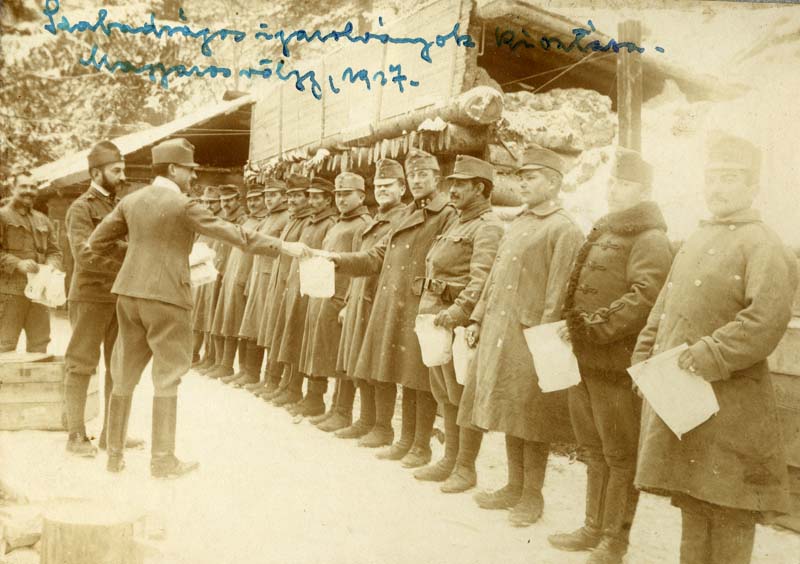 Szabadságos igazolványok kiosztása.
Magyarosvölgy, 1917.